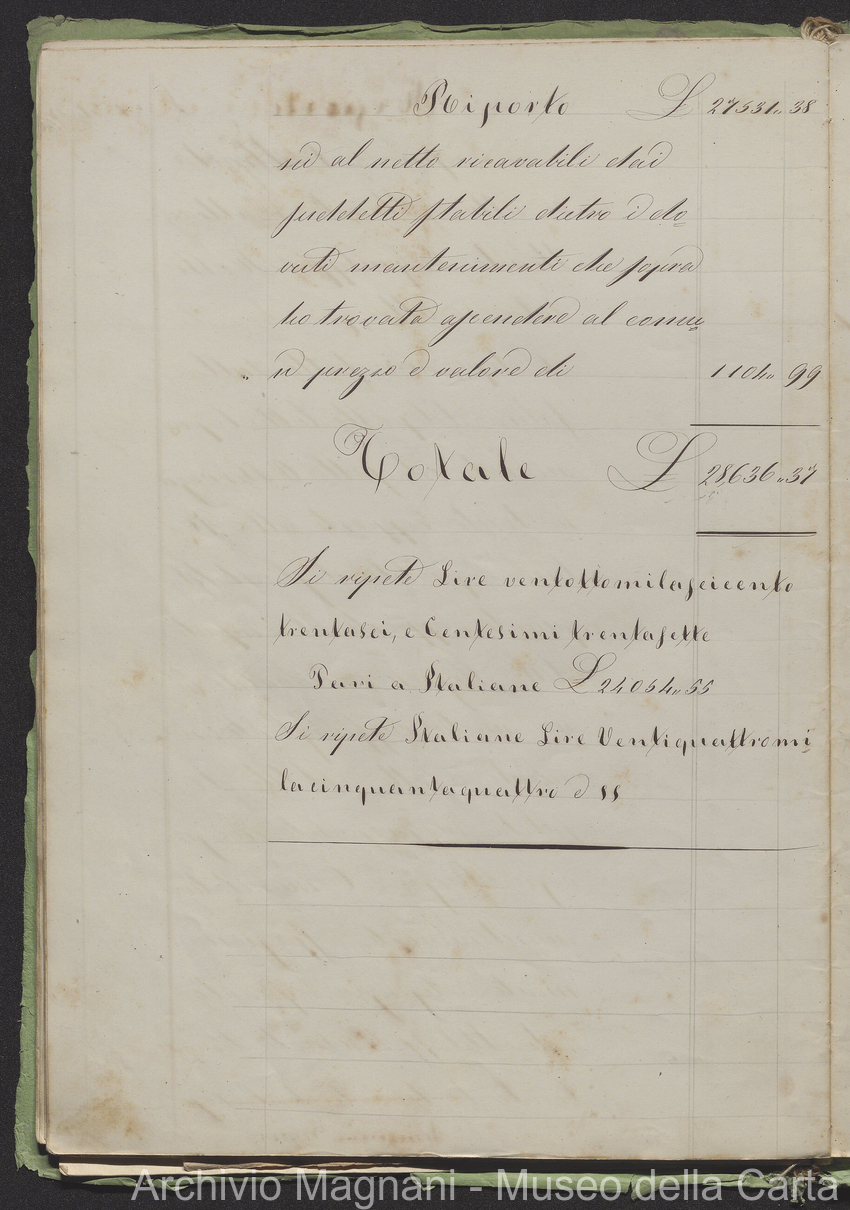 Riporto L 27531„38
ni al netto ricavabili dai
suddetti stabili dietro i do=
vuti mantenimenti che sopra
ho trovato ascendere al comu=
ne prezzo e valore di 1104„99
Totale L 28,636„37
Si ripete Lire ventottomilaseicento
trentasei, e Centesimi trentasette
Pari a Italiane L 24054„55
Si ripete Italiane Lire Ventiquattromi=
lacinquantaquattro e 55
Archivio Magnani - Museo della Carta